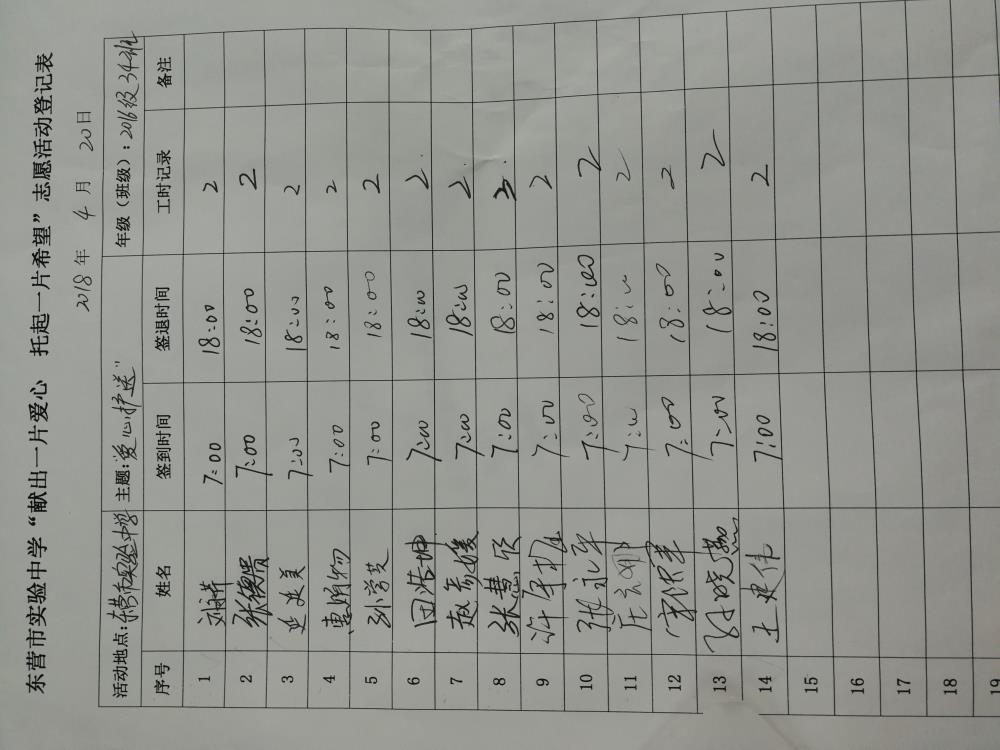 东营市实验中学“献出一片爱心 托起一片希望”志愿活动登记表
2018年 4月 20日
活动地点：东营市实验中学 主题：“爱心护送” 年级（班级）：2016级34班
序号 姓名 签到时间 签退时间 工时记录 备注
1 7:00 18:00 2
2 7:00 18:00 2
3 7:00 18:00 2
4 7:00 18:00 2
5 孙学芝 7:00 18:00 2
6 田浩坤 7:00 18:00 2
7 赵秀媛 7:00 18:00 2
8 张慧欣 7:00 18:00
9 7:00 18:00 2
10 张永军 7:00 18:00 2
11 7:00 18:00 2
12 7:00 18:00 2
13 7:00 18:00 2
14 王建伟 7:00 18:00 2
15
16
17
18
19